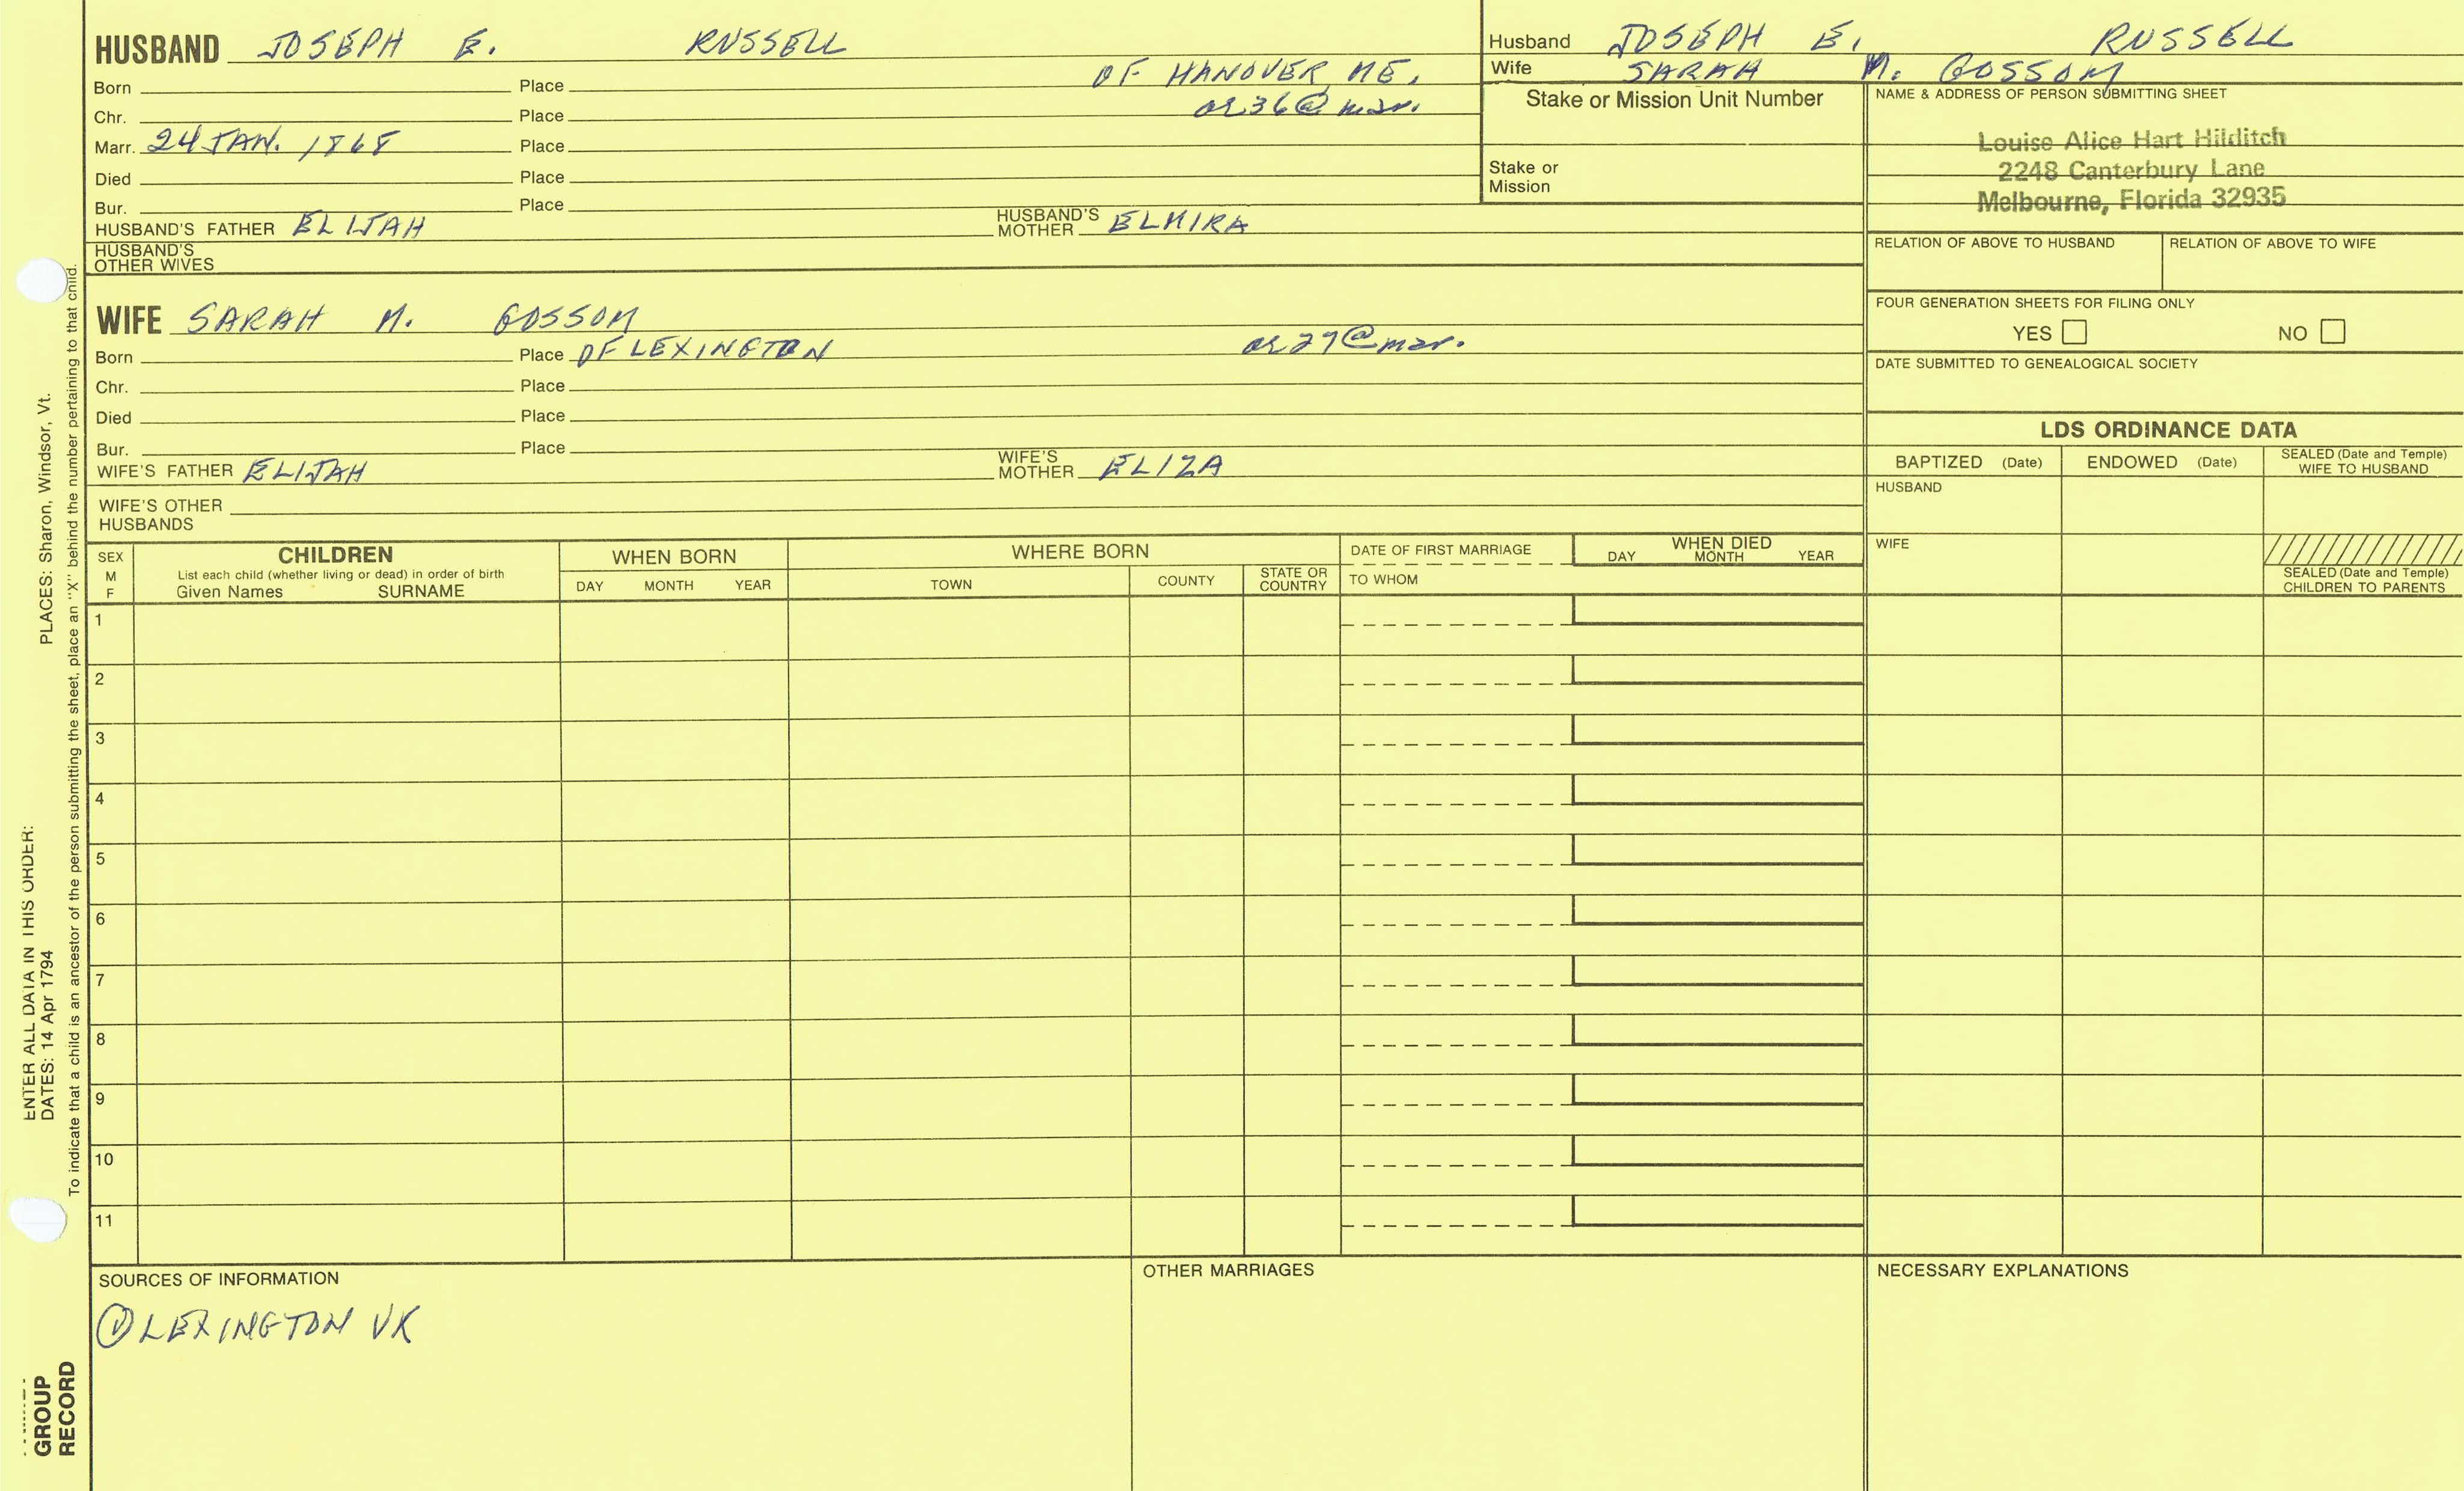 HUSBAND JOSEPH E. RUSSELL
OF HANOVER ME.
Born Place
ae 36 @ mar.
Chr. Place
Marr. 24 JAN. 1868 Place
Died Place
Bur. Place
HUSBAND'S FATHER ELIJAH HUSBAND'S MOTHER ELMIRA
HUSBAND'S OTHER WIVES
WIFE SARAH M. GOSSOM
Born Place OF LEXINGTON ae 27 @ mar.
Chr. Place
Died Place
Bur. Place
WIFE'S FATHER ELIJAH WIFE'S MOTHER ELIZA
WIFE'S OTHER HUSBANDS
Husband JOSEPH E. RUSSELL
Wife SARAH M. GOSSOM
Stake or Mission Unit Number
Stake or Mission
NAME & ADDRESS OF PERSON SUBMITTING SHEET
Louise Alice Hart Hilditch
2248 Canterbury Lane
Melbourne, Florida 32935
RELATION OF ABOVE TO HUSBAND RELATION OF ABOVE TO WIFE
FOUR GENERATION SHEETS FOR FILING ONLY
YES NO
DATE SUBMITTED TO GENEALOGICAL SOCIETY
LDS ORDINANCE DATA
BAPTIZED (Date) ENDOWED (Date) SEALED (Date and Temple) WIFE TO HUSBAND
HUSBAND
WIFE
SEALED (Date and Temple) CHILDREN TO PARENTS
SEX M F
CHILDREN
List each child (whether living or dead) in order of birth
Given Names SURNAME
WHEN BORN
DAY MONTH YEAR
WHERE BORN
TOWN COUNTY STATE OR COUNTRY
DATE OF FIRST MARRIAGE
TO WHOM
WHEN DIED
DAY MONTH YEAR
1
2
3
4
5
6
7
8
9
10
11
SOURCES OF INFORMATION
① LEXINGTON VR
OTHER MARRIAGES
NECESSARY EXPLANATIONS
ENTER ALL DATA IN THIS ORDER:
DATES: 14 Apr 1794 PLACES: Sharon, Windsor, Vt.
To indicate that a child is an ancestor of the person submitting the sheet, place an "X" behind the number pertaining to that child.
GROUP
RECORD